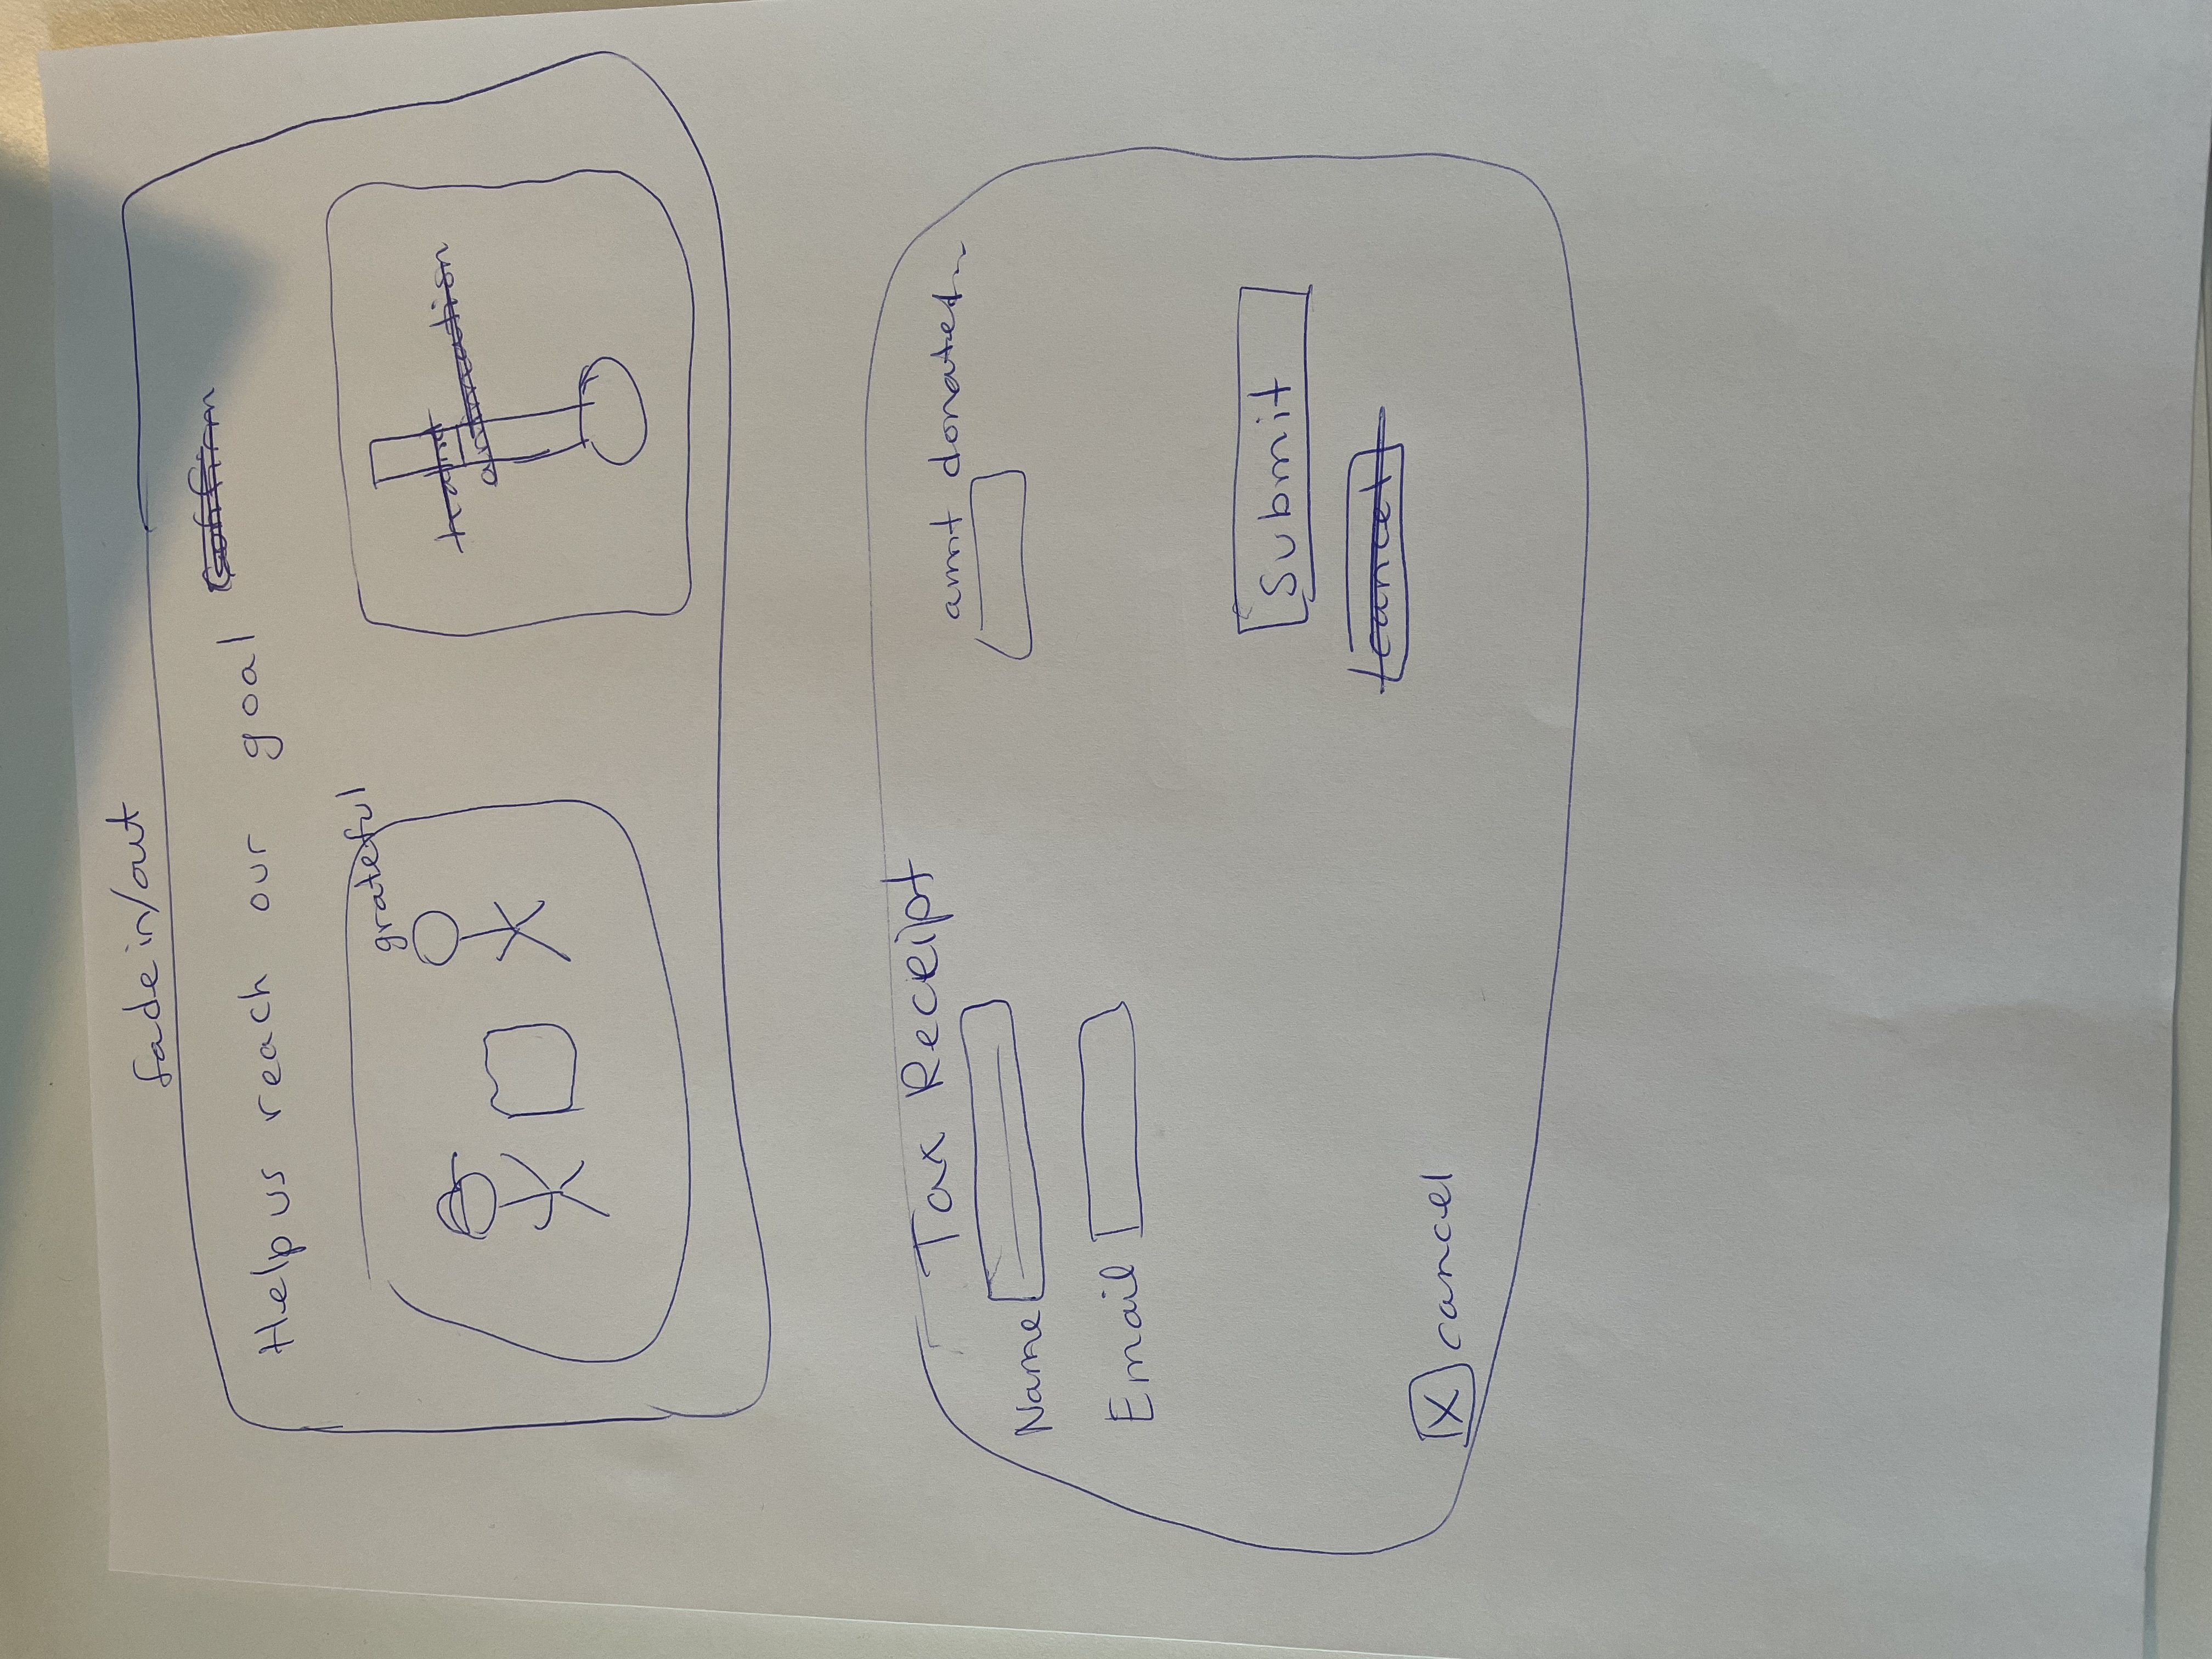 fade in/out
Help us reach our goal Confirm
grateful
animation
Tax Receipt
amt donated
Name
Email
Submit
cancel
X cancel